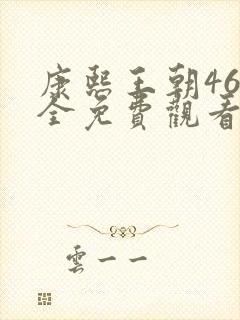 康熙王朝46
全免費觀看
雲一一